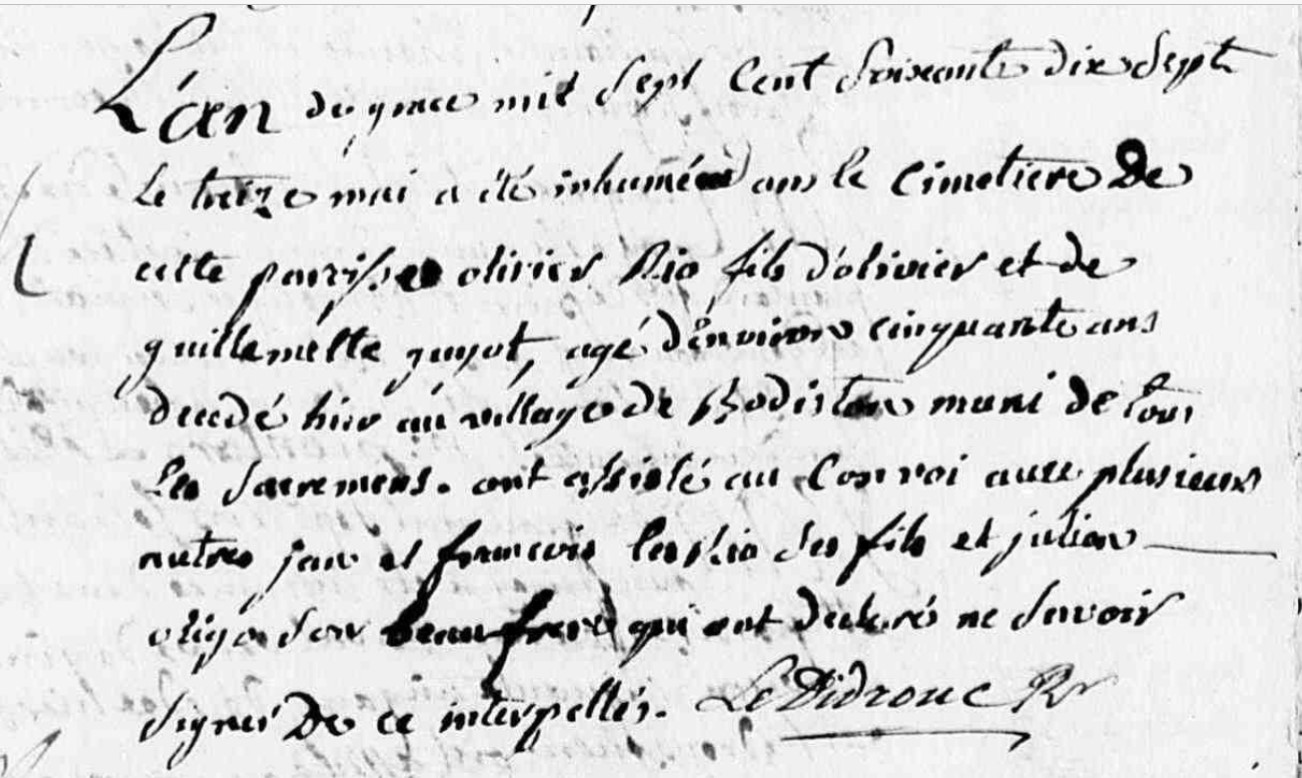 L'an de grace mil Sept Cent Soixante dix Sept
Le treize mai a été inhumé dans le Cimetiere De
cette paroisse olivier Rio fils d'olivier et de
guillemette guyot, agé d'environ cinquante ans
decedé hier au village de Bodistin muni de tous
Les Sacremens. ont assisté au Convoi avec plusieurs
autres jan et francois les Rio ses fils et julien
son beau frere qui ont declaré ne Savoir
Signer De ce interpellés. Le Didrouc Rr